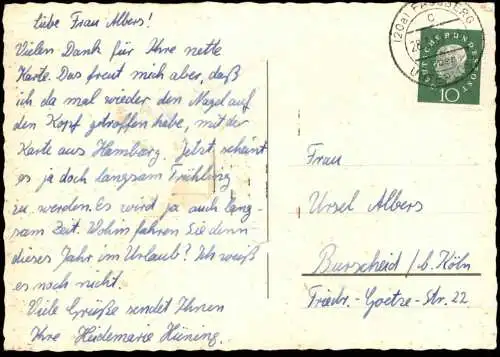 Liebe Frau Albers!
Vielen Dank für Ihre nette
Karte. Das freut mich aber, daß
ich da mal wieder den Nagel auf
den Kopf getroffen habe, mit der
Karte aus Hamburg. Jetzt scheint
es ja doch langsam Frühling
zu werden. Es wird ja auch lang-
sam Zeit. Wohin fahren Sie denn
dieses Jahr im Urlaub? Ich weiß
es noch nicht.
Viele Grüße sendet Ihnen
Ihre Heidemarie Hüning.
(20a) FASSBERG
c
DEUTSCHE BUNDESPOST
10
Frau
Ursel Albers
Burscheid /b. Köln
Friedr.-Goetze-Str. 22